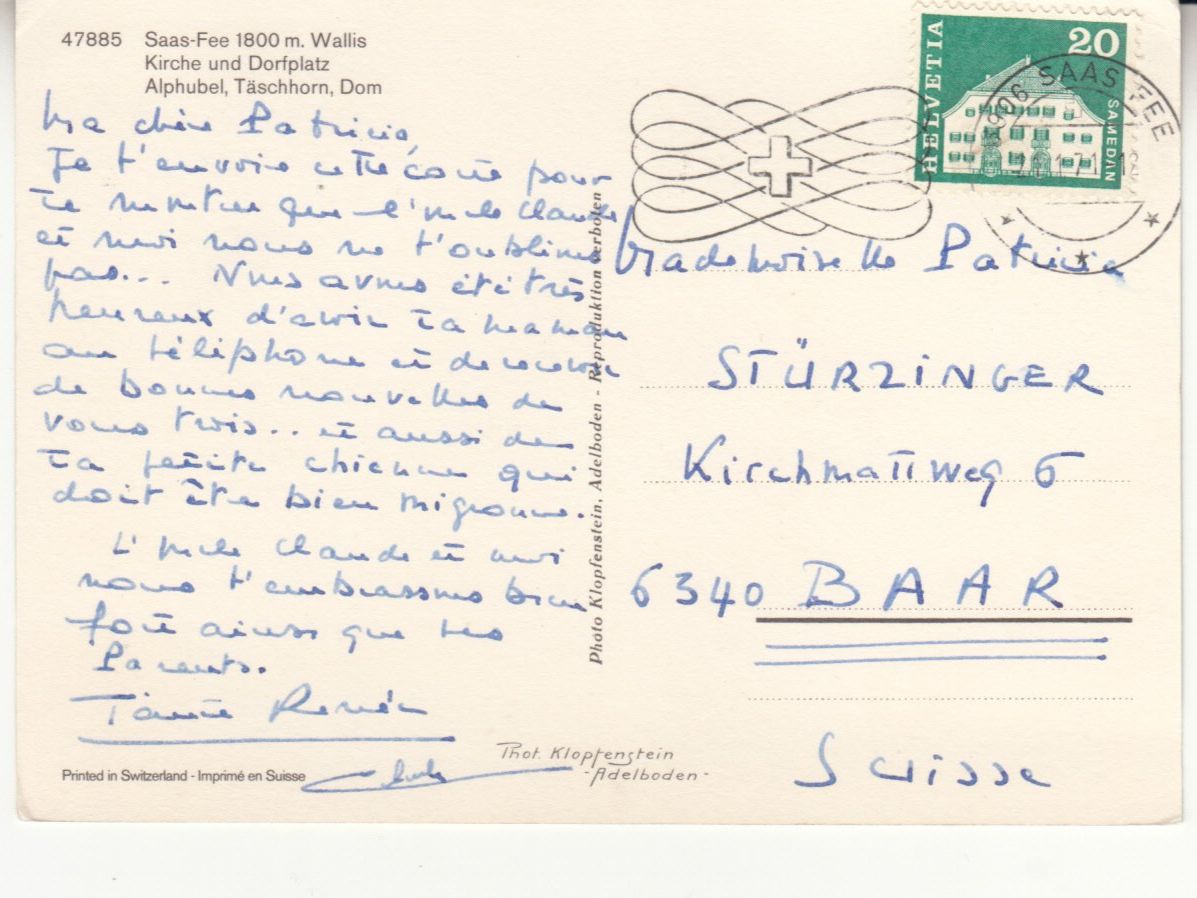 47885 Saas-Fee 1800 m. Wallis
Kirche und Dorfplatz
Alphubel, Täschhorn, Dom
Ma chère Patricia,
Je t'envoie cette carte pour
te montrer que l'oncle Claude
et moi nous ne t'oublions
pas... Nous avons été très
heureux d'avoir ta maman
au téléphone et de recevoir
de bonnes nouvelles de
vous trois.. et aussi de
ta petite chienne qui
doit être bien mignonne.
L'oncle Claude et moi
nous t'embrassons bien
fort ainsi que tes
Parents.
Tante Renée
Printed in Switzerland - Imprimé en Suisse
Photo Klopfenstein, Adelboden - Reproduktion verboten
Phot. Klopfenstein
- Adelboden -
HELVETIA
20
SAMEDAN
3906 SAAS FEE
Mademoiselle Patricia
STÜRZINGER
Kirchmattweg 6
6340 BAAR
Suisse